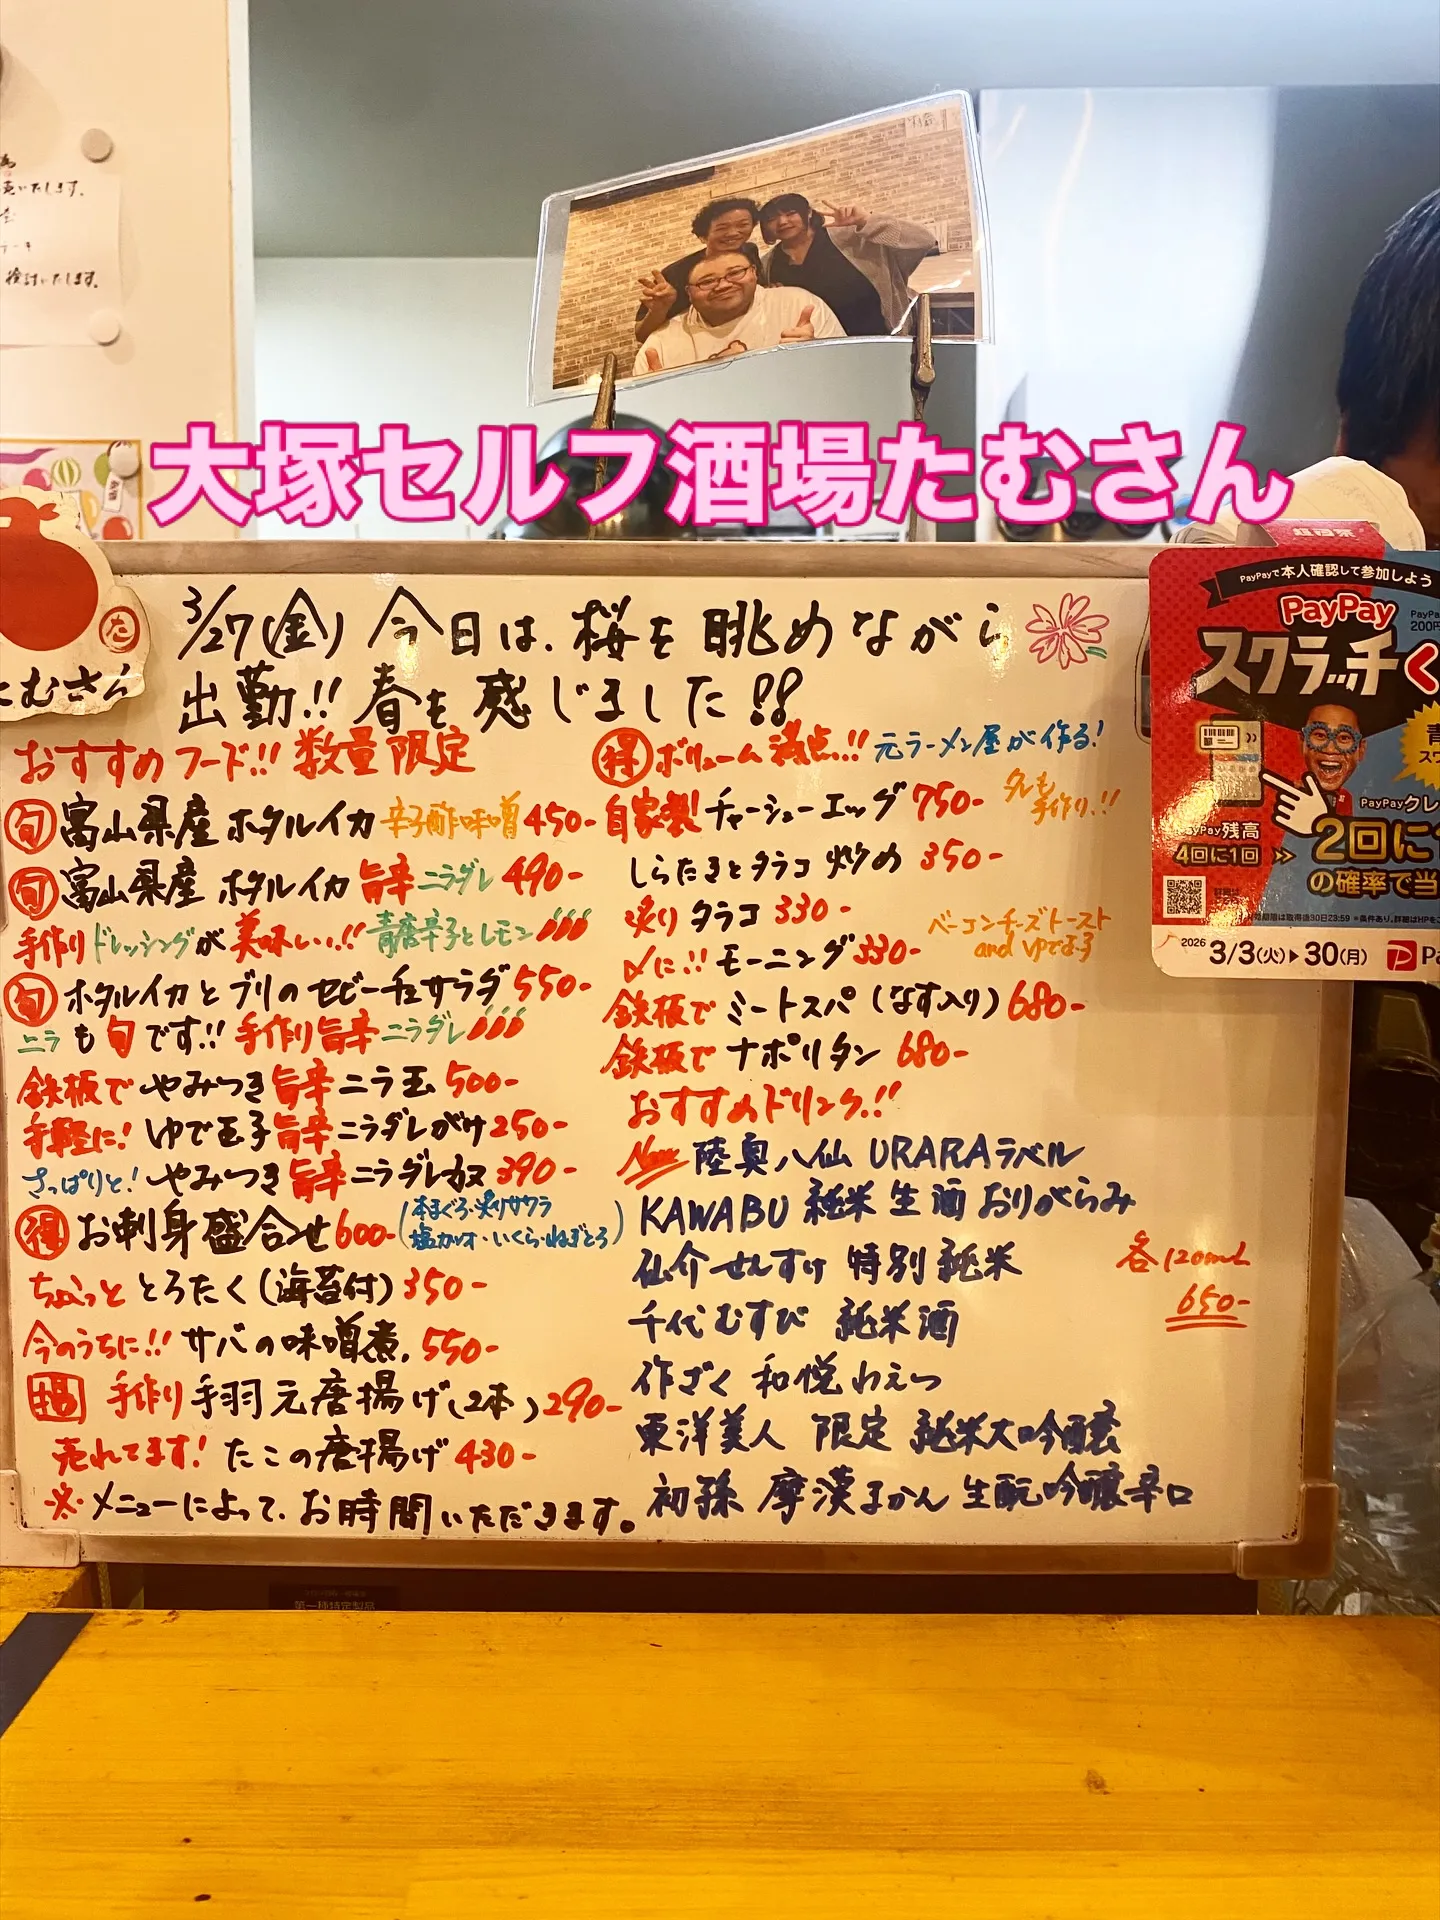 売いたします。
検討いたします。
大塚セルフ酒場たむさん
た
たむさん
3/27(金) 今日は、桜を眺めながら
出勤!! 春を感じました!!
おすすめフード!! 数量限定
旬 富山県産 ホタルイカ 辛子酢味噌 450-
旬 富山県産 ホタルイカ 旨辛ニラダレ 490-
手作りドレッシングが美味しい!! 青唐辛子とレモン
旬 ホタルイカとブリのセビーチェサラダ 550-
ニラも旬です!! 手作り旨辛ニラダレ
鉄板で やみつき旨辛ニラ玉 500-
手軽に! ゆで玉子旨辛ニラダレがけ 250-
さっぱりと! やみつき旨辛ニラダレ奴 390-
得 お刺身盛合せ 600- (本まぐろ・炙りサワラ
塩カツオ・いくら・ねぎとろ)
ちょっと とろたく(海苔付) 350-
今のうちに!! サバの味噌煮 550-
手作り 手羽元唐揚げ(2本) 290-
売れてます! たこの唐揚げ 430-
※メニューによって、お時間いただきます。
得 ボリューム満点!! 元ラーメン屋が作る!
自家製! チャーシューエッグ 750- タレも
手作り!!
しらたきとタラコ炒め 350-
炙りタラコ 330-
〆に!! モーニング 330- ベーコンチーズトースト
and ゆで玉子
鉄板で ミートスパ(なす入り) 680-
鉄板で ナポリタン 680-
おすすめドリンク!!
New 陸奥八仙 URARAラベル
KAWABU 純米 生酒 おりがらみ
仙介 せんすけ 特別純米
千代むすび 純米酒
作 ざく 和悦 わえつ
東洋美人 限定 純米大吟醸
初孫 摩漠 まかん 生酛吟醸辛口
各120mL
650-
超福祭
PayPayで本人確認して参加しよう
PayPay
スクラッチく
PayPay残高
4回に1回
PayPayクレ
2回に
の確率で当
2026 3/3(火)▶30(月)
第一種特定製品